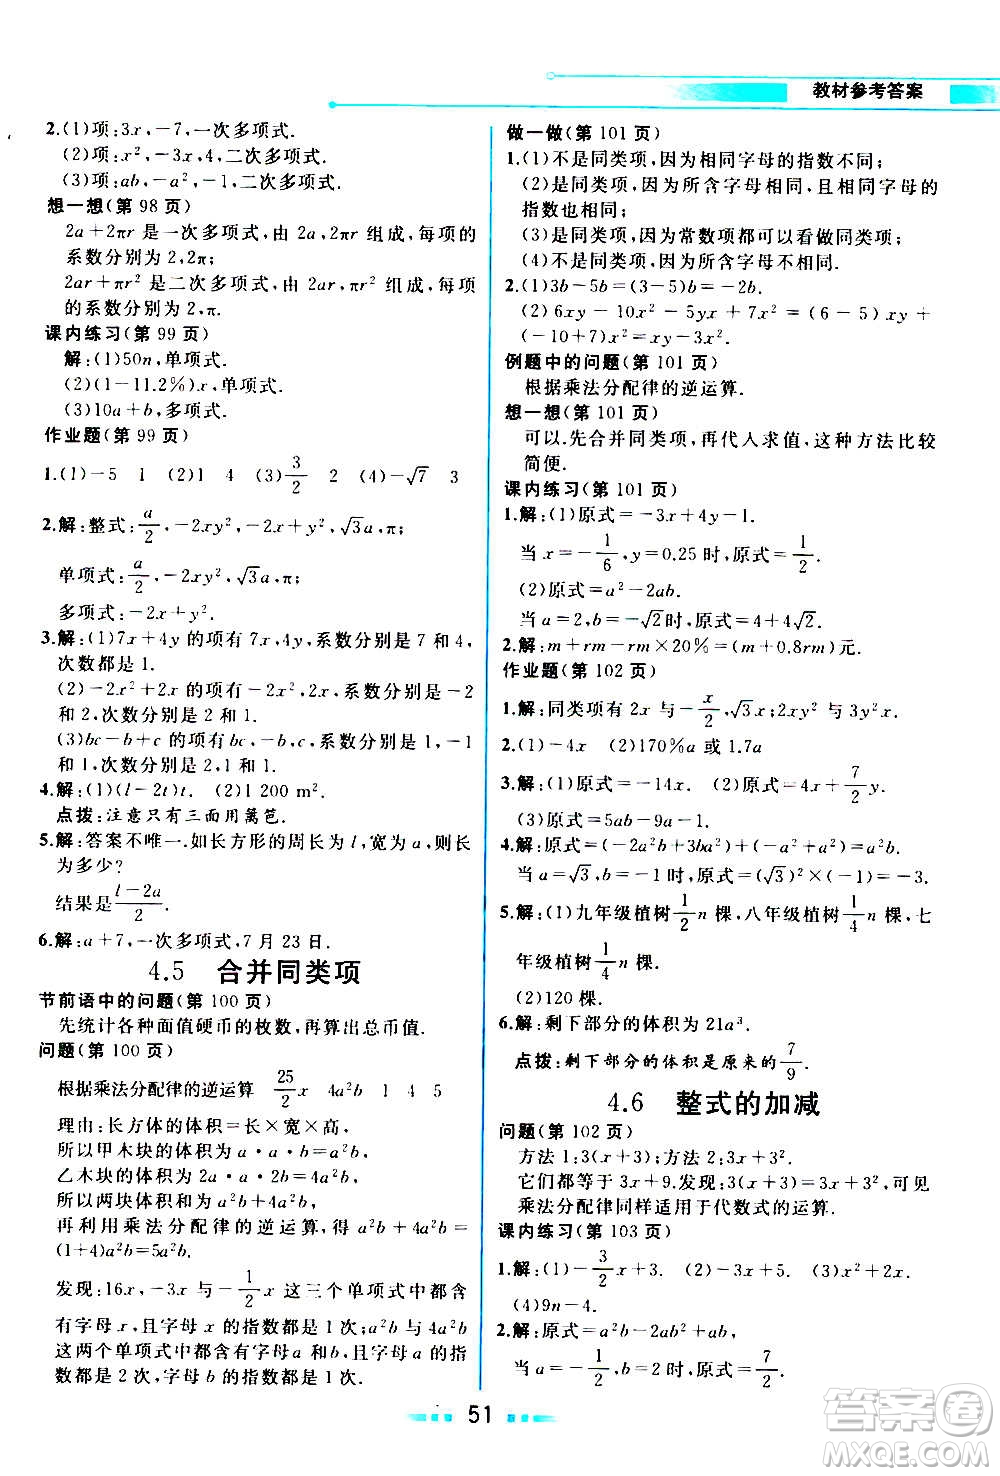 教材参考答案
2.(1)项:3x,-7,一次多项式.
(2)项:x²,-3x,4,二次多项式.
(3)项:ab,-a²,-1,二次多项式.
想一想(第 98 页)
2a+2πr 是一次多项式,由 2a,2πr 组成,每项的
系数分别为 2,2π;
2ar+πr² 是二次多项式,由 2ar,πr² 组成,每项的
系数分别为 2,π.
课内练习(第 99 页)
解:(1)50n,单项式.
(2)(1-11.2%)x,单项式.
(3)10a+b,多项式.
作业题(第 99 页)
1.(1)-5 1 (2)1 4 (3)3/2 2 (4)-√7 3
2.解:整式:a/2,-2xy²,-2x+y²,√3a,π;
单项式:a/2,-2xy²,√3a,π;
多项式:-2x+y².
3.解:(1)7x+4y 的项有 7x,4y,系数分别是 7 和 4,
次数都是 1.
(2)-2x²+2x 的项有-2x²,2x,系数分别是-2
和 2,次数分别是 2 和 1.
(3)bc-b+c 的项有 bc,-b,c,系数分别是 1,-1
和 1,次数分别是 2,1,1.
4.解:(1)(l-2t)t. (2)1 200 m².
点拨:注意只有三面用篱笆.
5.解:答案不唯一.如长方形的周长为 l,宽为 a,则长
为多少?
结果是(l-2a)/2.
6.解:a+7,一次多项式,7 月 23 日.
4.5 合并同类项
节前语中的问题(第 100 页)
先统计各种面值硬币的枚数,再算出总币值.
问题(第 100 页)
根据乘法分配律的逆运算 25/2 x 4a²b 1 4 5
理由:长方体的体积=长×宽×高,
所以甲木块的体积为 a·a·b=a²b,
乙木块的体积为 2a·2a·b=4a²b,
所以两块体积为 a²b+4a²b,
再利用乘法分配律的逆运算,得 a²b+4a²b=
(1+4)a²b=5a²b.
发现:16x,-3x 与-1/2 x 这三个单项式中都含
有字母 x,且字母 x 的指数都是 1 次;a²b 与 4a²b
这两个单项式中都含有字母 a,b,且字母 a 的指
数都是 2 次,字母 b 的指数都是 1 次.
做一做(第 101 页)
1.(1)不是同类项,因为相同字母的指数不同;
(2)是同类项,因为所含字母相同,且相同字母的
指数也相同;
(3)是同类项,因为常数项都可以看做同类项;
(4)不是同类项,因为所含字母不相同.
2.(1)3b-5b=(3-5)b=-2b.
(2)6xy-10x²-5yx+7x²=(6-5)xy+
(-10+7)x²=xy-3x².
例题中的问题(第 101 页)
根据乘法分配律的逆运算.
想一想(第 101 页)
可以.先合并同类项,再代人求值,这种方法比较
简便.
课内练习(第 101 页)
1.解:(1)原式=-3x+4y-1.
当 x=-1/6,y=0.25 时,原式=1/2.
(2)原式=a²-2ab.
当 a=2,b=-√2时,原式=4+4√2.
2.解:m+rm-rm×20%=(m+0.8rm)元.
作业题(第 102 页)
1.解:同类项有 2x 与-x/2,√3x;2xy²与 3y²x.
2.(1)-4x (2)170%a 或 1.7a
3.解:(1)原式=-14x. (2)原式=4x+7/2 y.
(3)原式=5ab-9a-1.
4.解:原式=(-2a²b+3ba²)+(-a²+a²)=a²b.
当 a=√3,b=-1 时,原式=(√3)²×(-1)=-3.
5.解:(1)九年级植树1/2 n 棵,八年级植树1/4 n 棵,七
年级植树1/4 n 棵.
(2)120 棵.
6.解:剩下部分的体积为 21a³.
点拨:剩下部分的体积是原来的7/9.
4.6 整式的加减
问题(第 102 页)
方法 1:3(x+3);方法 2:3x+3².
它们都等于 3x+9.发现:3(x+3)=3x+3²,
乘法分配律同样适用于代数式的运算.
课内练习(第 103 页)
1.解:(1)-3/2 x+3. (2)-3x+5. (3)x²+x.
(4)9n-4.
2.解:原式=a²b-2ab²+ab,
当 a=-1/2,b=2 时,原式=7/2.
51
答案圈
MXQE.COM